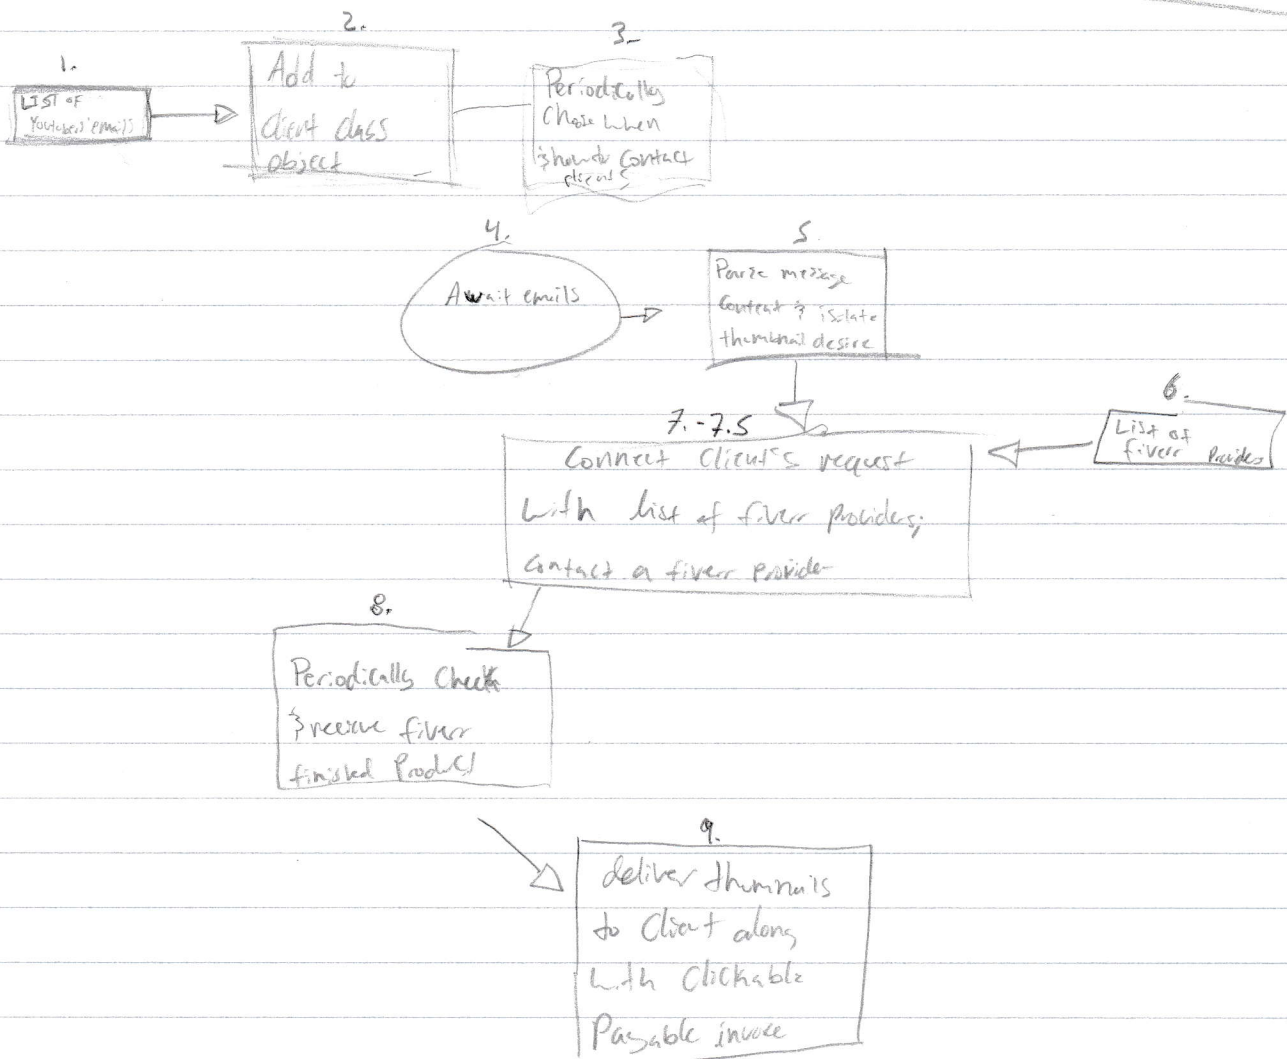 1.
LIST OF
Youtubers' emails
2.
Add to
Client class
object
3.
Periodically
Chose when
& how to Contact
4.
Await emails
5.
Parse message
Content & isolate
thumbnail desire
6.
List of
fiverr Providers
7.-7.5
Connect Client's request
with list of fiverr Providers;
Contact a fiverr Provider
8.
Periodically Check
& receive fiverr
finished Product
9.
deliver thumnails
to Client along
with Clickable
Payable invoice